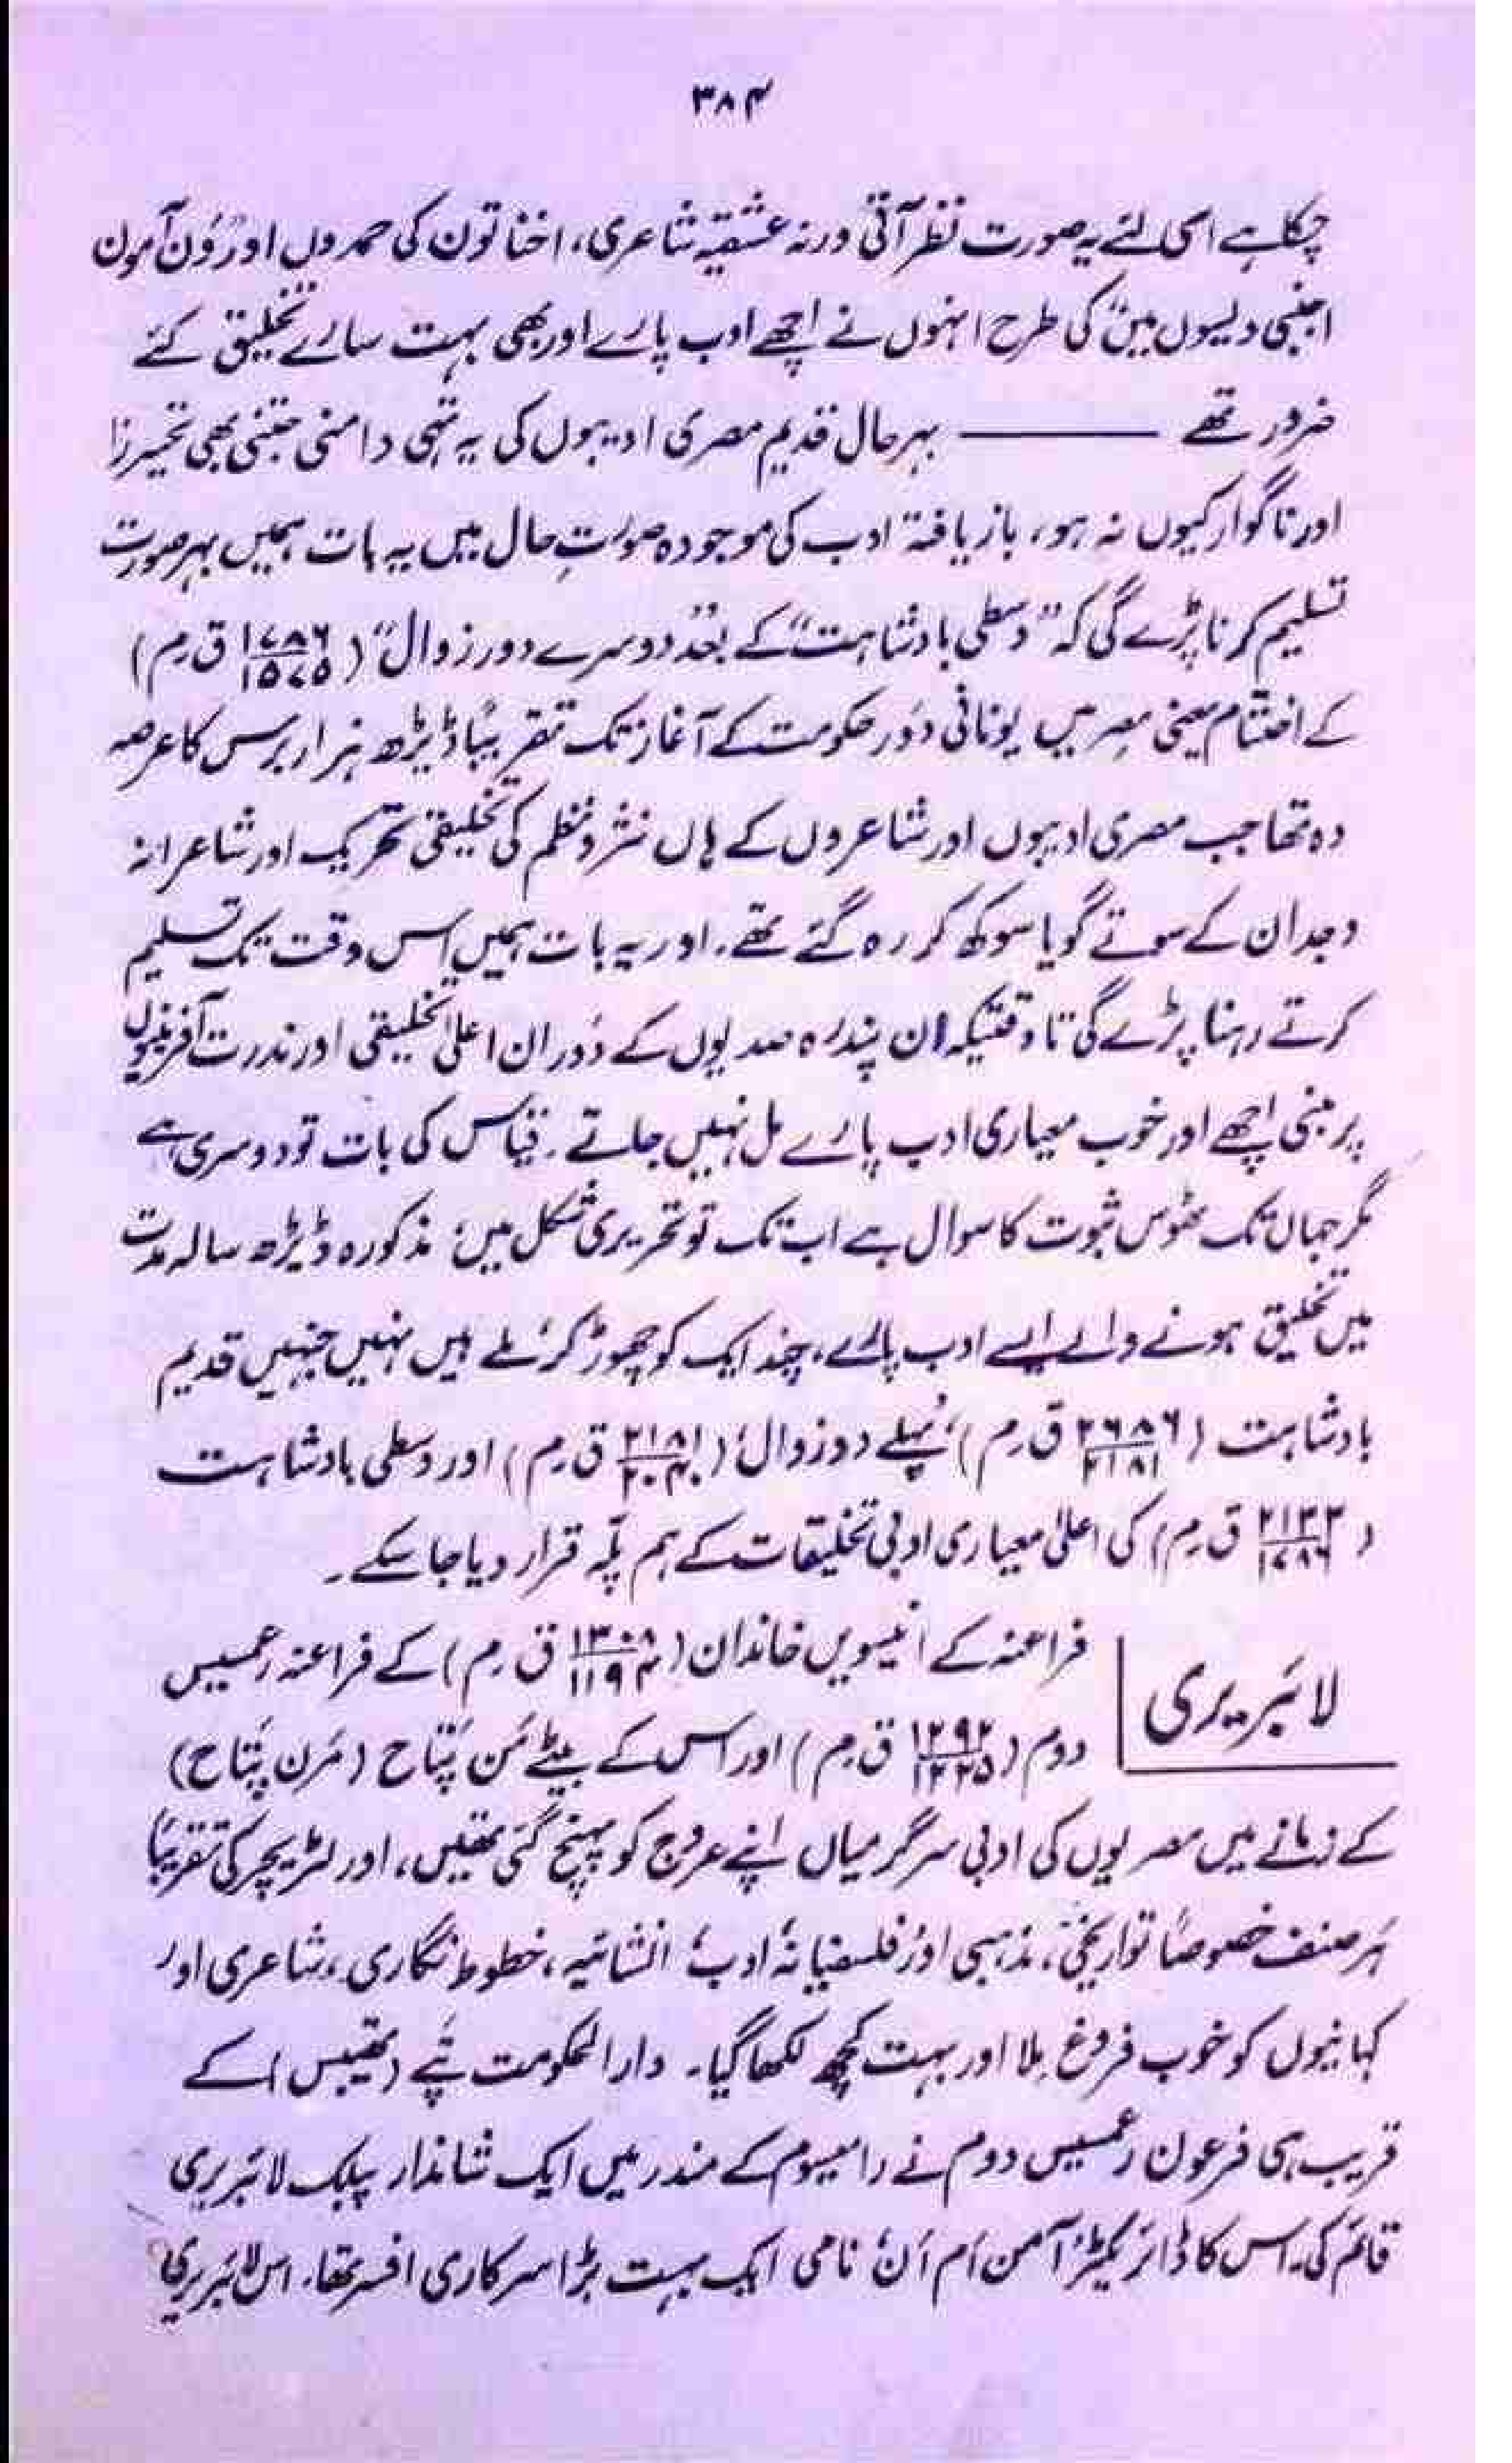 ۳۸۴
چکا ہے اسی لئے یہ صورت نظر آئی ورنہ عشقیہ شاعری، اخناتون کی حمدوں اور "وُن آمون
اجنبی دیسوں میں" کی طرح انہوں نے اچھے ادب پارے اور بھی بہت سارے تخلیق کئے
ضرور تھے ——— بہر حال قدیم مصری ادیبوں کی یہ تہی دامنی جتنی بھی تحیر زا
اور ناگوار کیوں نہ ہو، باز یافتہ ادب کی موجودہ صورتِ حال میں یہ بات ہمیں بہر صورت
تسلیم کرنا پڑے گی کہ "وسطی بادشاہت" کے بعد "دوسرے دور زوال" (۱۷۸۶/۱۵۷۵ ق۔م)
کے اختتام یعنی مصر میں یونانی دَور حکومت کے آغاز تک تقریباً ڈیڑھ ہزار برس کا عرصہ
وہ تھا جب مصری ادیبوں اور شاعروں کے ہاں نثر و نظم کی تخلیقی تحریک اور شاعرانہ
وجدان کے سوتے گویا سوکھ کر رہ گئے تھے۔ اور یہ بات ہمیں اس وقت تک تسلیم
کرتے رہنا پڑے گی تا وقتیکہ ان پندرہ صدیوں کے دَوران اعلیٰ تخلیقی اور ندرت آفرینیوں
پر مبنی اچھے اور خوب معیاری ادب پارے مل نہیں جاتے۔ قیاس کی بات تو دوسری ہے
مگر جہاں تک ٹھوس ثبوت کا سوال ہے اب تک تو تحریری شکل میں، مذکورہ ڈیڑھ سالہ مدت
میں تخلیق ہونے والے ایسے ادب پارے، چند ایک کو چھوڑ کر، ملے ہیں نہیں جنہیں قدیم
بادشاہت (۲۶۸۶/۲۱۸۱ ق۔م)، پہلے دور زوال، (۲۱۸۱/۲۰۴۰ ق۔م) اور وسطی بادشاہت
(۲۱۳۳/۱۷۸۶ ق۔م) کی اعلیٰ معیاری ادبی تخلیقات کے ہم پلّہ قرار دیا جا سکے۔
لائبریری
فراعنہ کے انیسویں خاندان (۱۳۰۸/۱۱۹۴ ق۔م) کے فراعنہ رعمسیس
دوم (۱۲۹۲/۱۲۲۵ ق۔م) اور اس کے بیٹے مَن پَتاح (مَرن پَتاح)
کے زمانے میں مصریوں کی ادبی سرگرمیاں اپنے عروج کو پہنچ گئی تھیں، اور لٹریچر کی تقریباً
ہر صنف خصوصاً تواریخی، مذہبی اور فلسفیانہ ادب، انشائیہ، خطوط نگاری، شاعری اور
کہانیوں کو خوب فروغ ملا اور بہت کچھ لکھا گیا۔ دارالحکومت تپے (تھیبس) کے
قریب ہی فرعون رعمسیس دوم نے رامسیوم کے مندر میں ایک شاندار پبلک لائبریری
قائم کی۔ اس کا ڈائریکٹر، آمن اَم اَن، نامی ایک بہت بڑا سرکاری افسر تھا۔ اس لائبریری